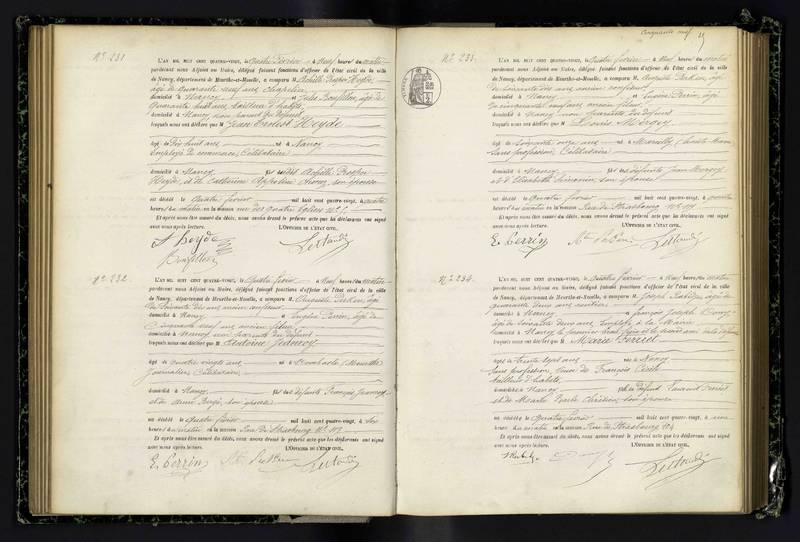 N° 231
L'AN MIL HUIT CENT QUATRE-VINGT, le Quatre février à Neuf heures du matin
pardevant nous Adjoint au Maire, délégué faisant fonctions d'officier de l'état civil de la ville
de Nancy, département de Meurthe-et-Moselle, a comparu M. Achille Prosper Heyde
âgé de quarante neuf ans chapelier
domicilié à Nancy et Jules Boufillon, âgé de
quarante huit ans tailleur d'habits,
domicilié à Nancy non parent du défunt
lesquels nous ont déclaré que M Jean Ernest Heyde
âgé de Dix huit ans né à Nancy
Employé de commerce, Célibataire
domicilié à Nancy fils des dits Achille Prosper
Heyde, et de Catherine Appoline son épouse
est décédé le quatre février mil huit cent quatre-vingt, à
heures du matin en la maison rue des quatre Eglises N°
Et après nous être assuré du décès, nous avons dressé le présent acte que les déclarants ont signé
avec nous après lecture. L'OFFICIER DE L'ÉTAT CIVIL,
Heyde
N° 232
L'AN MIL HUIT CENT QUATRE-VINGT, le Quatre février à Neuf heures du matin
pardevant nous Adjoint au Maire, délégué faisant fonctions d'officier de l'état civil de la ville
de Nancy, département de Meurthe-et-Moselle, a comparu M. Auguste âgé
de Soixante dix ans ancien confiseur
domicilié à Nancy et Eugène Perrin, âgé de
Cinquante neuf ans ancien fileur
domicilié à Nancy non parents du défunt
lesquels nous ont déclaré que M Antoine
âgé de quatre vingts ans né à Dombasle (Meurthe)
Journalier Célibataire
domicilié à Nancy fils des défunts François
et de Anne son épouse
est décédé le quatre février mil huit cent quatre-vingt, à
heures du matin en la maison Rue de Strasbourg N°
Et après nous être assuré du décès, nous avons dressé le présent acte que les déclarants ont signé
avec nous après lecture. L'OFFICIER DE L'ÉTAT CIVIL,
E. Perrin
Cinquante neuf
N° 233
L'AN MIL HUIT CENT QUATRE-VINGT, le Quatre février à Neuf heures du matin
pardevant nous Adjoint au Maire, délégué faisant fonctions d'officier de l'état civil de la ville
de Nancy, département de Meurthe-et-Moselle, a comparu M. Auguste âgé
de Soixante dix ans ancien confiseur
domicilié à Nancy et Eugène Perrin, âgé
de cinquante neuf ans ancien fileur
domicilié à Nancy non parents du défunt
lesquels nous ont déclaré que M Louis
âgé de Soixante onze ans né à
Sans profession, Célibataire
domicilié à Nancy fils des défunts Jean
et d'Elisabeth son épouse
est décédé le quatre février mil huit cent quatre-vingt, à quatre
heures du matin en la maison Rue de Strasbourg N°
Et après nous être assuré du décès, nous avons dressé le présent acte que les déclarants ont signé
avec nous après lecture. L'OFFICIER DE L'ÉTAT CIVIL,
E. Perrin
N° 234
L'AN MIL HUIT CENT QUATRE-VINGT, le Quatre février à Neuf heures du matin
pardevant nous Adjoint au Maire, délégué faisant fonctions d'officier de l'état civil de la ville
de Nancy, département de Meurthe-et-Moselle, a comparu M. Joseph âgé de
quarante deux ans rentier
domicilié à Nancy et François Joseph
âgé de soixante deux ans, Employé à la Mairie
domicilié à Nancy le premier beau frère et le second ami de la défunte
lesquels nous ont déclaré que M Marie
âgé de trente sept ans née à Nancy
Sans profession, Veuve de François
tailleur d'habits
domiciliée à Nancy fille de défunt
et de Marie son épouse
est décédée le quatre février mil huit cent quatre-vingt, à une
heure du matin en la maison Rue de Strasbourg 104
Et après nous être assuré du décès, nous avons dressé le présent acte que les déclarants ont signé
avec nous après lecture. L'OFFICIER DE L'ÉTAT CIVIL,